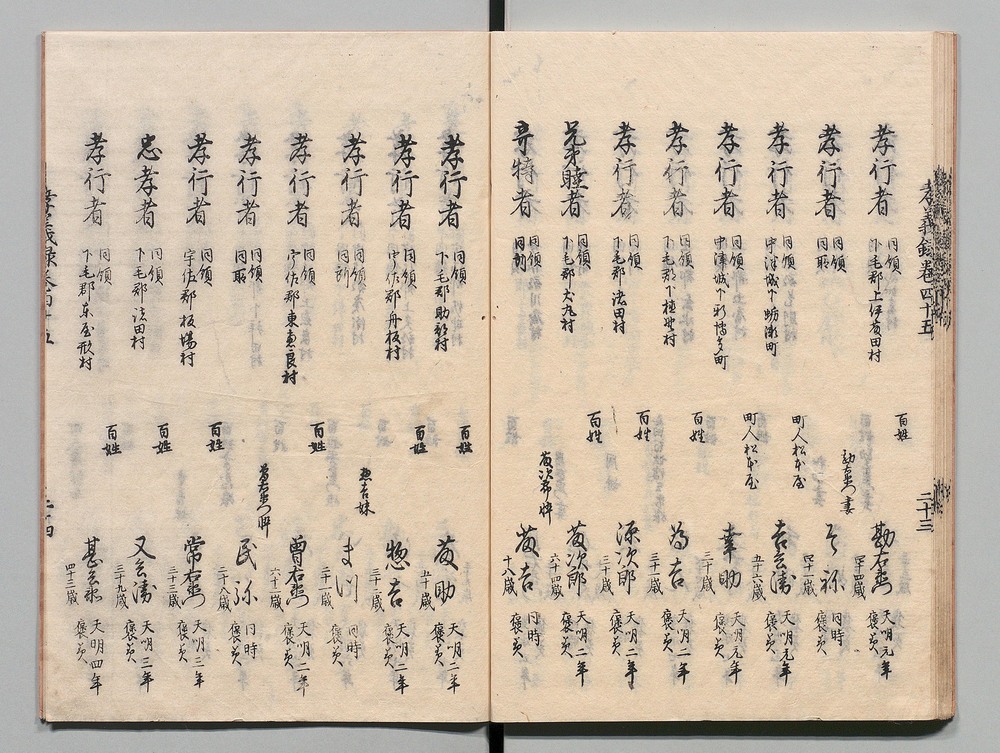 孝義録卷四十五
二十三
孝行者 同領 下毛郡上伊藤田村 百姓 勘右衛門 四十四歳 天明元年 褒美
孝行者 同領 同所 勘右衛門妻 そ祢 四十歳 同時 褒美
孝行者 同領 中津城下蛎瀬町 町人松本屋 吉兵衛 五十六歳 天明元年 褒美
孝行者 同領 中津城下新博多町 町人松本屋 幸助 三十歳 天明元年 褒美
孝行者 同領 下毛郡下植野村 百姓 為吉 三十歳 天明二年 褒美
孝行者 同領 下毛郡法田村 百姓 源次郎 三十歳 天明二年 褒美
兄弟睦者 同領 下毛郡犬丸村 百姓 藤次郎 六十四歳 天明二年 褒美
奇特者 同領 同所 藤次郎忰 藤吉 十八歳 同時 褒美
孝行者 同領 下毛郡助部村 百姓 藤助 五十歳 天明二年 褒美
孝行者 同領 宇佐郡舟板村 百姓 惣吉 三十二歳 天明二年 褒美
孝行者 同領 同所 惣吉妹 まつ 三十一歳 同時 褒美
孝行者 同領 宇佐郡東恵良村 百姓 曽右衛門 六十七歳 天明二年 褒美
孝行者 同領 同所 曽右衛門忰 民弥 二十八歳 同時 褒美
孝行者 同領 宇佐郡板場村 百姓 常右衛門 三十三歳 天明三年 褒美
忠孝者 同領 下毛郡法田村 百姓 又兵衛 三十九歳 天明三年 褒美
孝行者 同領 下毛郡東屋形村 百姓 甚兵衛 四十三歳 天明四年 褒美
孝義録卷四十五
二十四